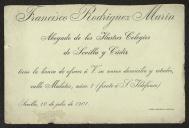 Francisco Rodríguez Marín
Abogado de los Ilustres Colegios
de Sevilla y Cádiz
tiene la honra de ofrecer á V. su nuevo domicilio y estudio,
calle Mudarra, núm. 1 (frente á S. Ildefonso)
Sevilla, 10 de julio de 1901.